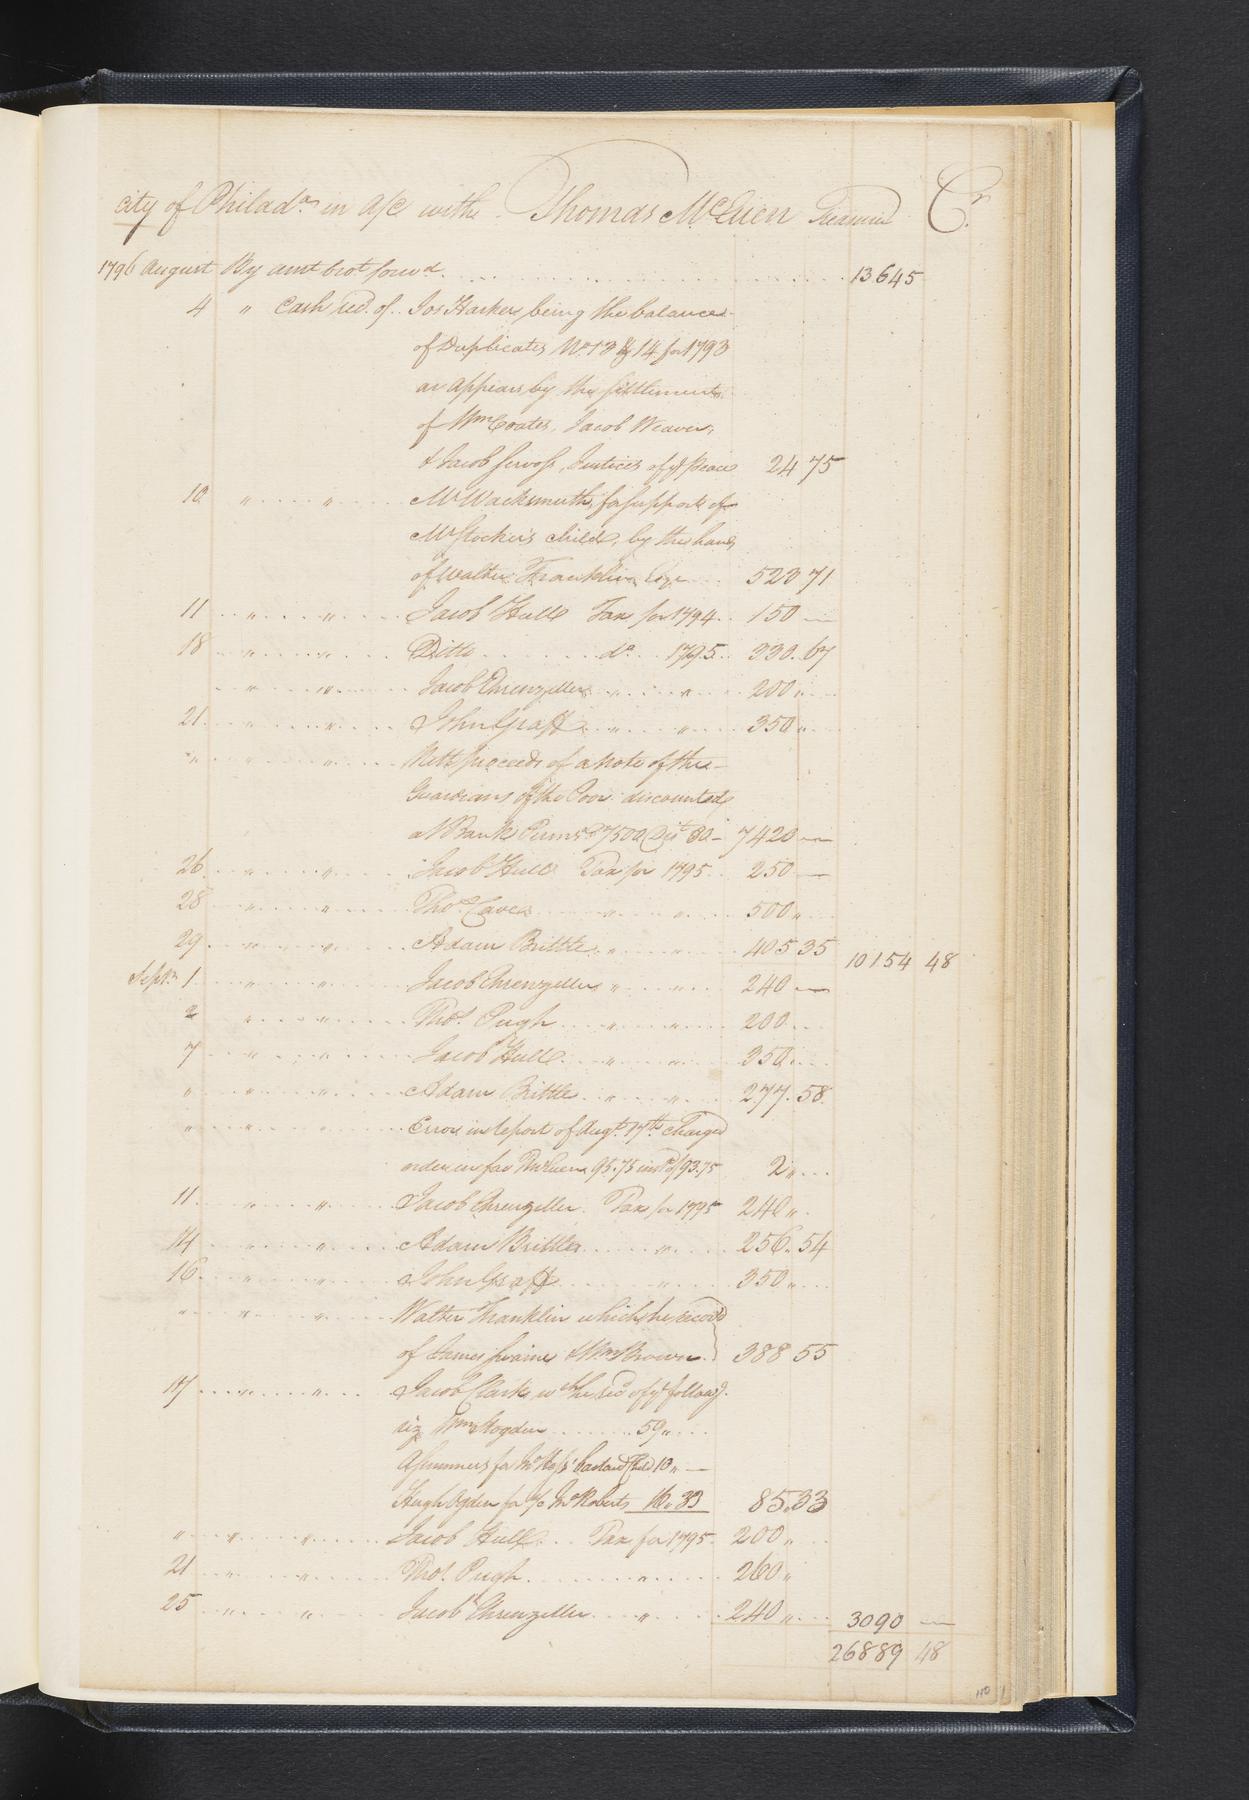 city of Philada. in a/c with Thomas McEuen Treasurer Cr.
1796 August By amt brot forwd. 13645
4 " Cash recd. of Jos Harker being the balance
of Duplicates No. 13 & 14 for 1793
as appears by the settlements
of Wm Coates, Jacob Weaver,
& Jacob Servoss, Justices of ye Peace 24 75
10 " " Mr Wacksmuth, for support of
Mr Stocker's child, by the hands
of Walter Franklin Esqr 523 71
11 " " Jacob Hull Tax for 1794 150 —
18 " " Ditto do. 1795 330. 67
" " Jacob Ehrenzeller " " 200 "
21 " " John Graff " " 350 "
" " " Nett proceeds of a note of the
Guardians of the Poor discounted
at Bank Penns. 7500 Dist 80 — 7420 —
26 " " Jacob Hull Tax for 1795 250 —
28 " " Thos. Cave " " 500 "
29 " " Adam Brittle " " 405 35 10154 48
Septr. 1 " " Jacob Ehrenzeller " " 240 —
2 " " Thos. Pugh " " 200
7 " " Jacob Hull " " 350
" " " Adam Brittle " " 277. 58
" " " Error in report of Augt. 17th. Charged
order in fav 95.75 instd. of 93.75 2 "
11 " " Jacob Ehrenzeller Tax for 1795 240 "
14 " " Adam Brittle " 256. 54
16 " " John Graff " 350 "
" " " Walter Franklin which he recevd
of James & Wm Brown } 388 55
17 " " Jacob Clark wch. he recd of ye follow.
viz Wm Hogden 59 "
for bastard Child 10 " —
Hugh Ogden for a/c Roberts 16. 33 85. 33
" " " Jacob Hull Tax for 1795 200 "
21 " " Thos. Pugh " 260 "
25 " " Jacob Ehrenzeller " 240 " 3090 —
26889 48
110